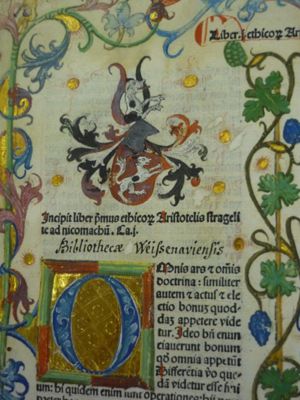 Liber .j. ethicoꝝ Ar
Incipit liber p̄mus ethicoꝝ Aristotelis strageli
te ad nicomachū. Ca.j.
Bibliothecæ Weissenaviensis
OMnis ars ⁊ om̄is
doctrina: similiter
autem ⁊ actus ⁊ ele
ctio bonuʒ quod
daʒ appetere vide
tur. Ideo bn̄ enun
ciauerunt bonum
qd omnia appetūt
Differētia vo que
dā videtur esse fini
um: hi quidem enim sunt operationes: hi v